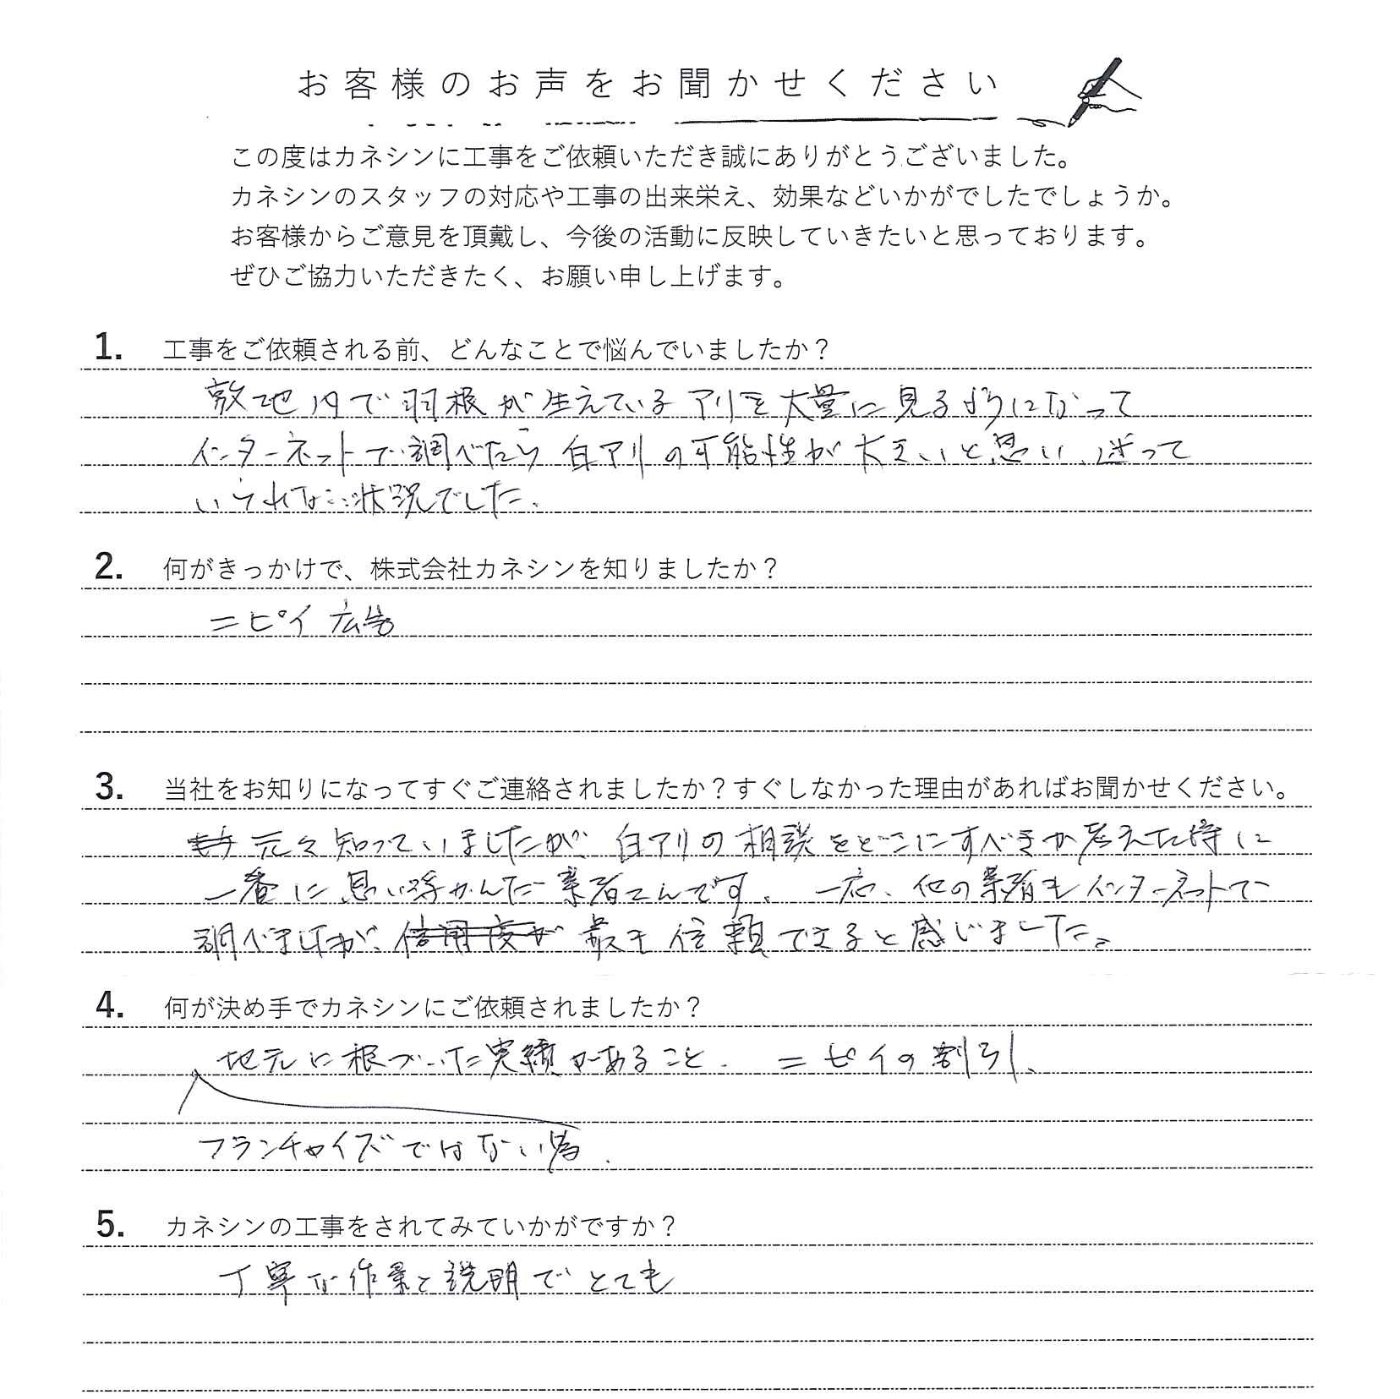 お客様のお声をお聞かせください
この度はカネシンに工事をご依頼いただき誠にありがとうございました。
カネシンのスタッフの対応や工事の出来栄え、効果などいかがでしたでしょうか。
お客様からご意見を頂戴し、今後の活動に反映していきたいと思っております。
ぜひご協力いただきたく、お願い申し上げます。
1. 工事をご依頼される前、どんなことで悩んでいましたか？
敷地内で羽根が生えているアリを大量に見るようになって
インターネットで調べたら白アリの可能性が大きいと思い、迷って
いられない状況でした。
2. 何がきっかけで、株式会社カネシンを知りましたか？
ニピイ広告
3. 当社をお知りになってすぐご連絡されましたか？すぐしなかった理由があればお聞かせください。
元々知っていましたが、白アリの相談をどこにすべきか考えた時に
一番に思い浮かんだ業者さんです。一応、他の業者もインターネットで
調べましたが、信用度が最も信頼できると感じました。
4. 何が決め手でカネシンにご依頼されましたか？
地元に根づいた実績があること。ニピイの割引、
フランチャイズではない為.
5. カネシンの工事をされてみていかがですか？
丁寧な作業と説明でとても